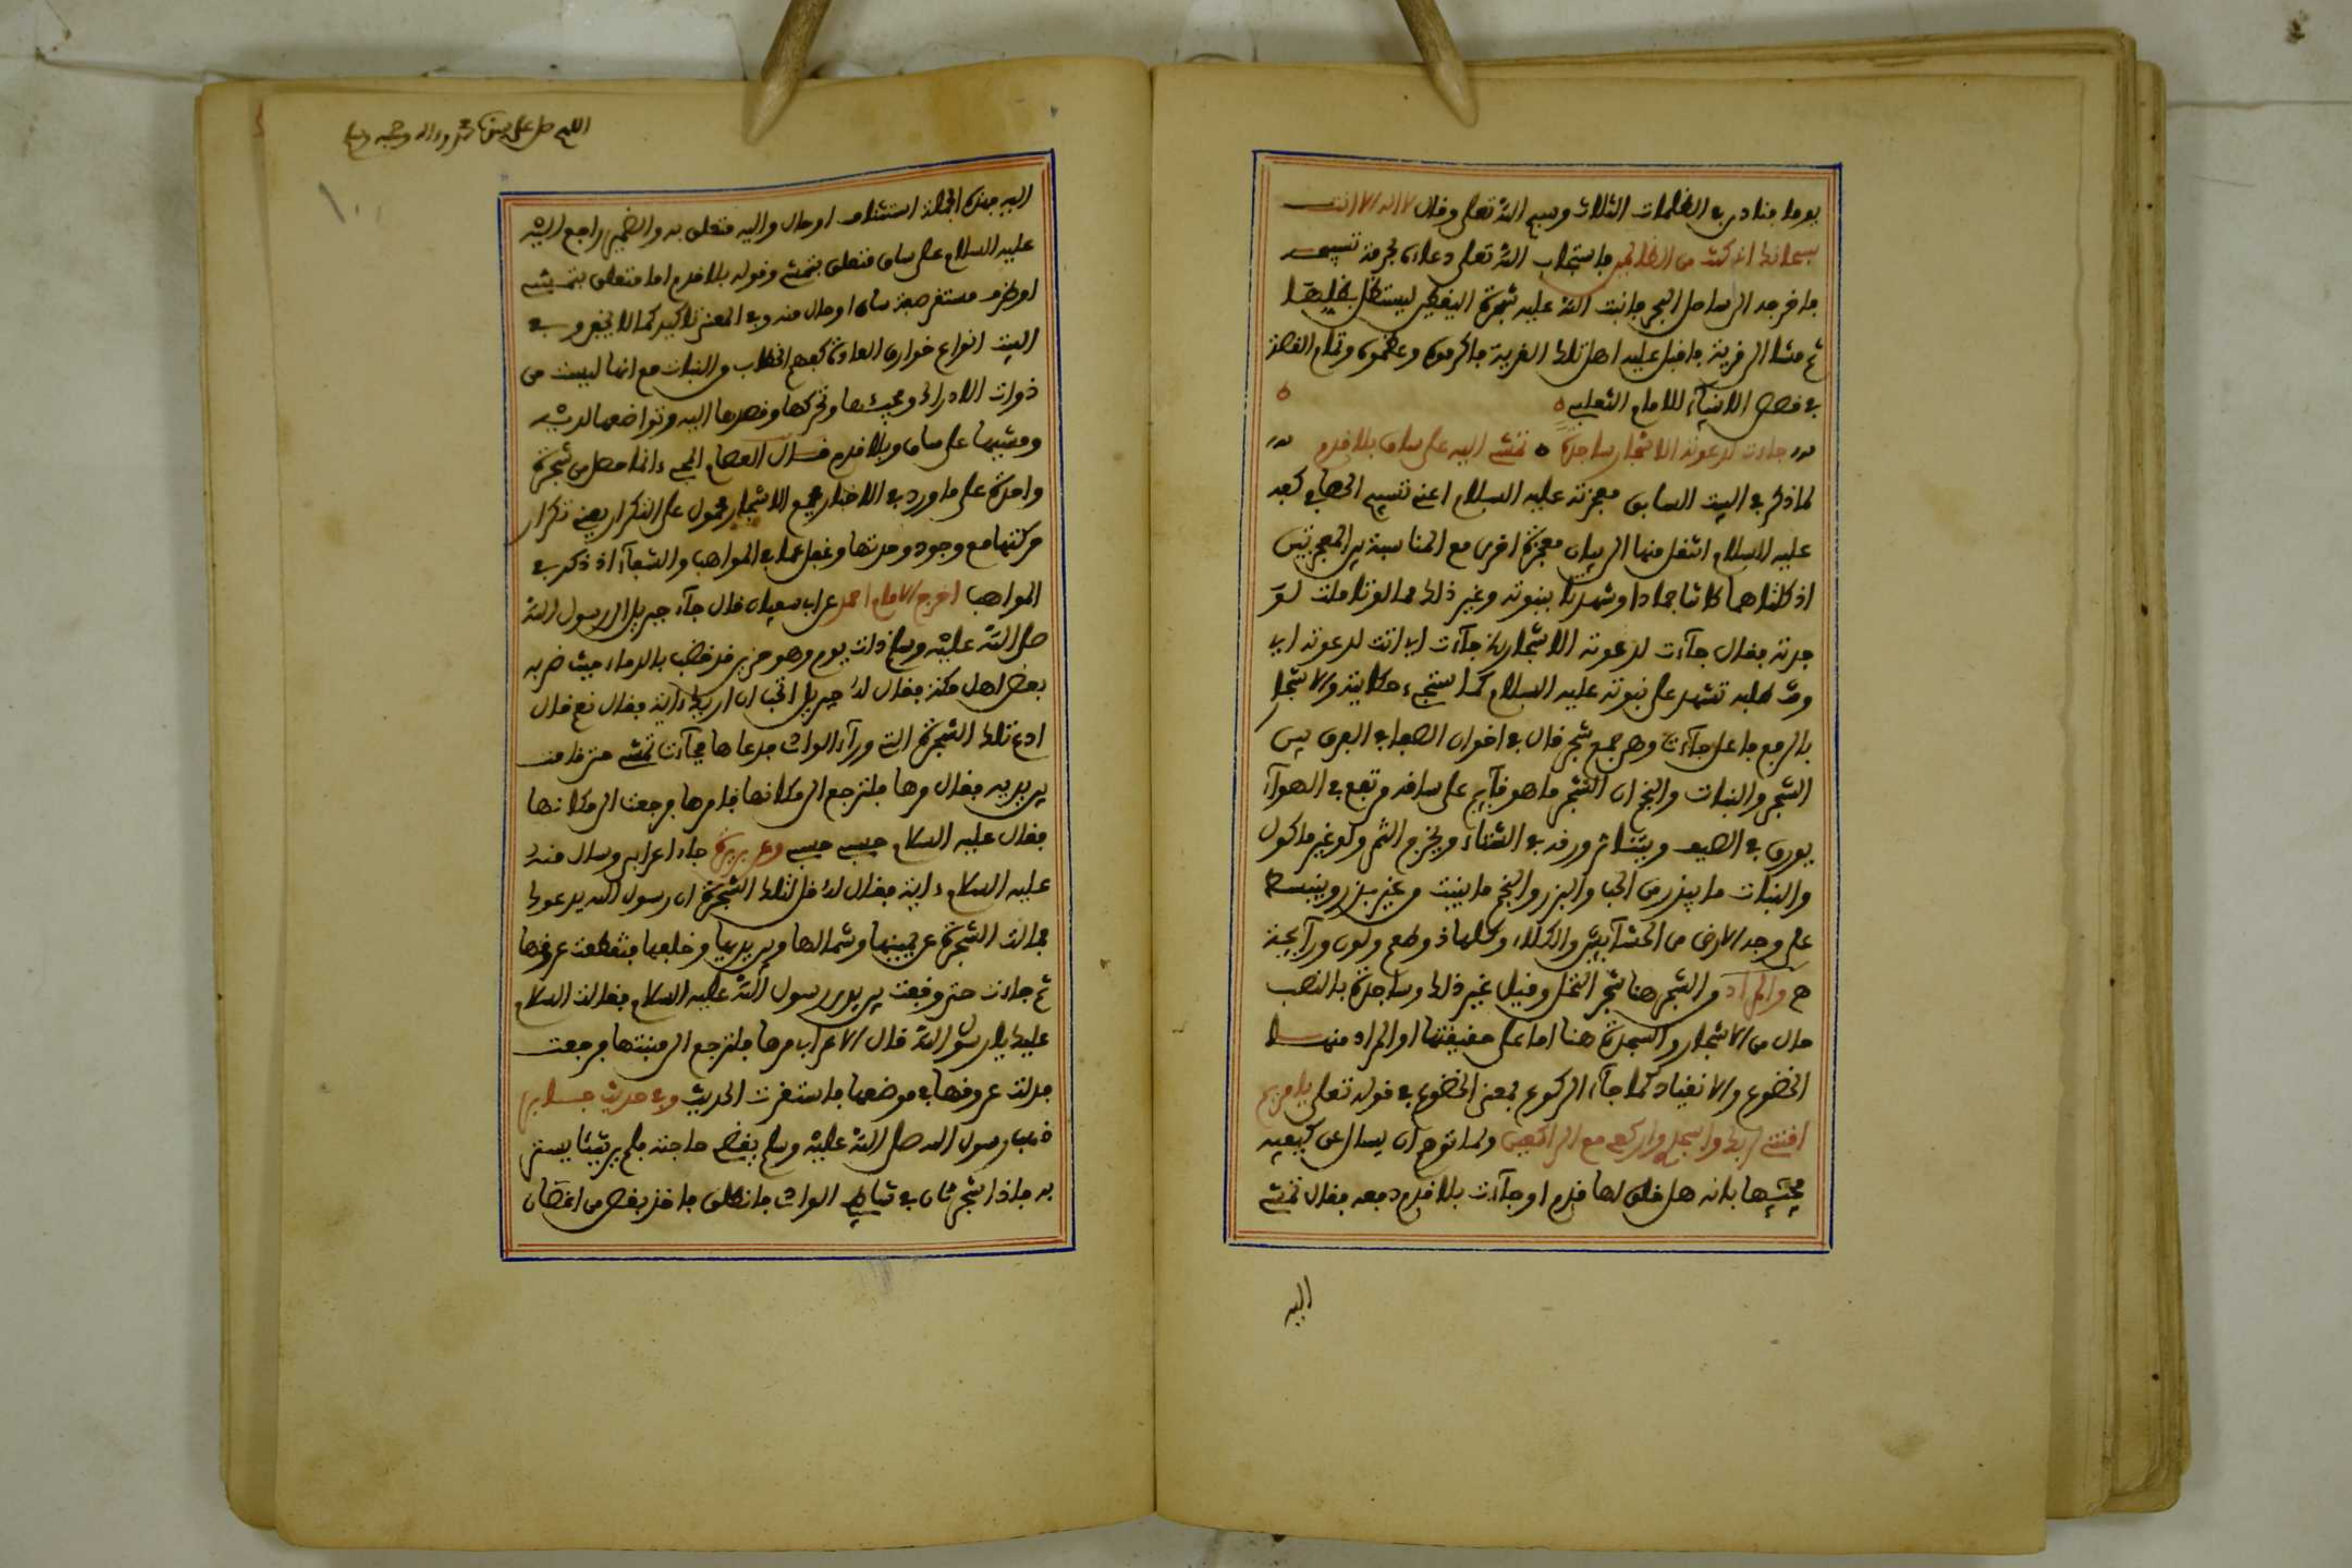 يوما فنادى في الظلمات الثلاث وسبح الله تعلى وقال لا اله الا انت
سبحانك انى كنت من الظالمين فاستجاب الله تعلى دعاءه بحرمة تسبيحه
فاخرجه الى ساحل البحر فانبت الله عليه شجرة اليقطين ليستظل بظلها
ثم مشا الى قرية فاقبل عليه اهل تلك القرية فاكرموه وعظموه وتمام القصة
في قصص الانبيآء للامام الثعلبي
جاءت لدعوته الاشجار ساجدة تمشى اليه على ساق بلا قدم
لما ذكر في البيت السابق معجزته عليه السلام اعنى تسبيح الحصا في كفه
عليه السلام انتقل منها الى بيان معجزة اخرى مع المناسبة بين المعجزتين
اذ كلتاهما كانتا جمادا وشهدتا بنبوته وغير ذلك مما لو تاملت
فقال جآءت لدعوته الاشجار جآءت اى اتت لدعوته اى
وقت طلبه تشهد على نبوته عليه السلام كما ستجىء حكايته والاشجار
بالرفع فاعل جآءت وهى جمع شجر قال في اخوان الصفا في الفرق بين
الشجر والنبات والنجم ان الشجر ما هو قآيم على ساقه مرتفع في الهوآء
يورق في الصيف ويتناثر ورقه في الشتاء ويخرج الثمر ولو غير ماكول
والنبات ما يبذر من الحب والبزر والنجم ما ينبت من غير بزر وينبسط
على وجه الارض من الحشآيش والكلاء وكلها ذو طعم ولون ورآيحة
والمراد من الشجر هنا شجر النخل وقيل غير ذلك وساجدة بالنصب
حال من الاشجار والسجدة هنا اما على حقيقتها او المراد منها
الخضوع والانقياد كما جآء الركوع بمعنى الخضوع في قوله تعلى يا مريم
اقنتى لربك واسجدى واركعى مع الراكعين ولما توهم ان يسال عن كيفية
مجيئها بانه هل خلق لها قدم او جآءت بلا قدم دفعه فقال تمشى
اليه
اللهم صل على سيدنا محمد وءاله وصحبه وسلم
اليه هذه الجملة استئناف او حال واليه متعلق به والضمير راجع اليه
عليه السلام على ساق متعلق بتمشى وقوله بلا قدم اما متعلق بتمشى
او ظرف مستقر صفة ساق او حال منه وفي المعنى تاكيد كما لا يخفى وفي
البيت انواع خوارق العادة كفهم الخطاب من النبات مع انها ليست من
ذوات الادراك ومجيئها وتحركها وقصدها اليه وتواضعها لديه
ومشيها على ساق وبلا قدم قال العصام المجىء انما حصل من شجرة
واحدة على ما ورد في الاخبار فجمع الاشجار محمول على التكرار يعنى تكرار
حركتها مع وجود وحدتها وغفل عما في المواهب والشفآء اذ ذكر في
المواهب اخرج الامام احمد عن ابى سفيان قال جآء جبريل الى رسول الله
صلى الله عليه وسلم ذات يوم وهو حزين قد خضب بالدماء حيث ضربه
بعض اهل مكة فقال له جبريل اتحب ان اريك ءاية فقال نعم قال
ادع تلك الشجرة التى ورآء الوادى فدعاها فجآءت تمشى حتى قامت
بين يديه فقال مرها فلترجع الى مكانها فامرها فرجعت الى مكانها
فقال عليه السلام حسبى حسبى وعن بريدة جاء اعرابى وسال منه
عليه السلام ءاية فقال له قل لتلك الشجرة ان رسول الله يدعوك
فمالت الشجرة عن يمينها وشمالها وبين يديها وخلفها فتقطعت عروقها
ثم جاءت حتى وقفت بين يدى رسول الله عليه السلام فقالت السلام
عليك يا رسول الله قال الاعرابى مرها فلترجع الى منبتها فرجعت
فدلت عروقها في موضعها فاستقرت الحديث وفي حديث جابر
ذهب رسول الله صلى الله عليه وسلم يقضى حاجته فلم ير شيئا يستتر
به فاذا شجرتان في شاطى الوادى فانطلق فاخذ بغصن من اغصان